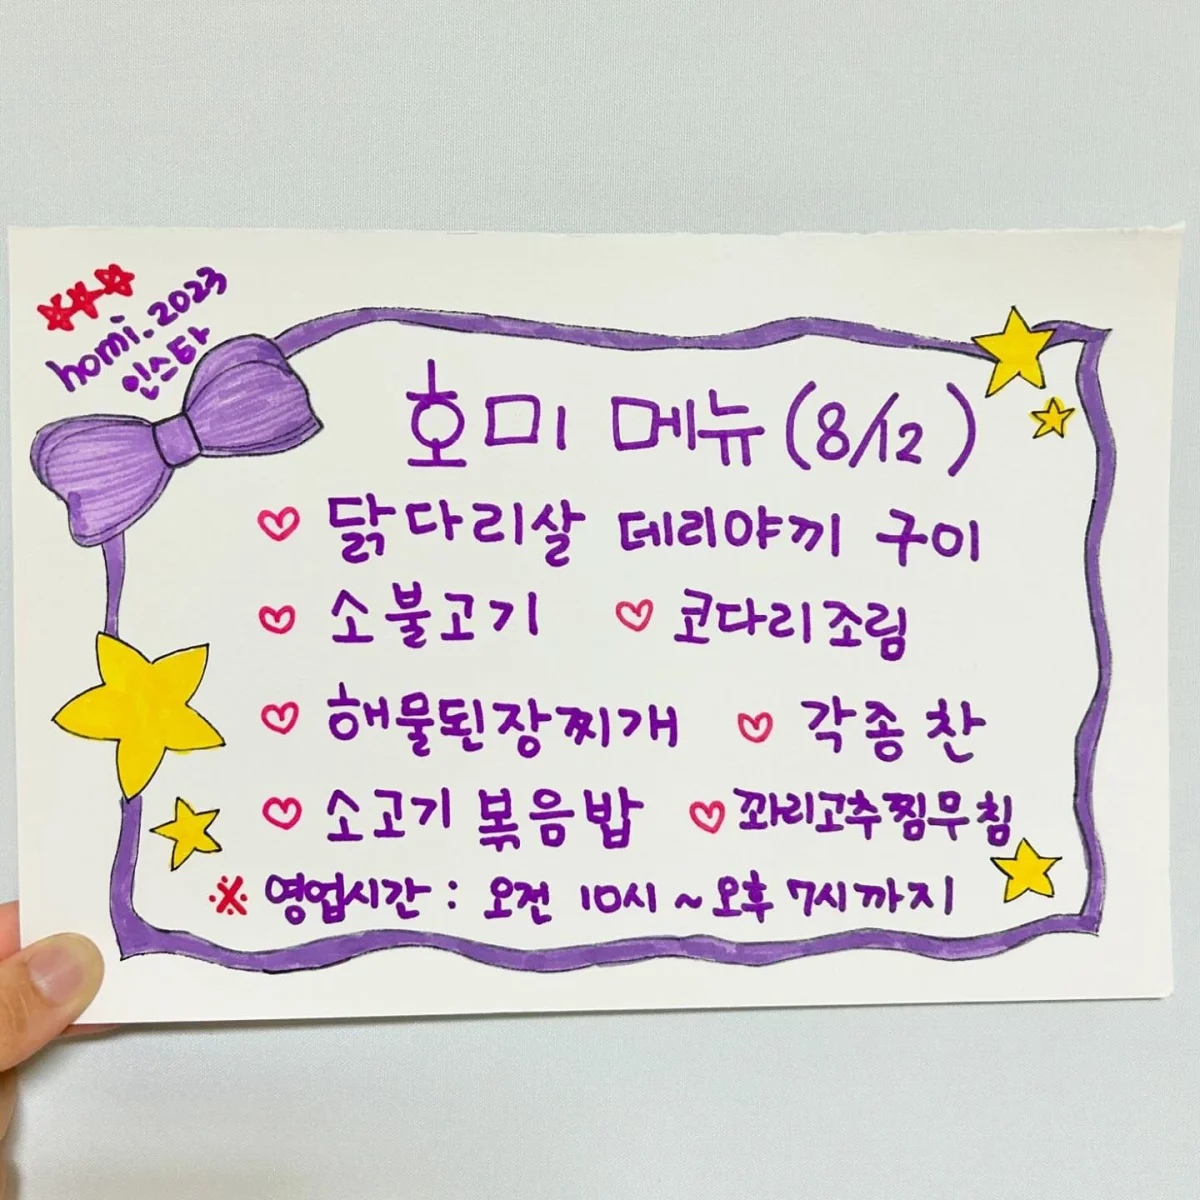 homi.2023
인스타
호미 메뉴 (8/12)
♡ 닭다리살 데리야끼 구이
♡ 소불고기 ♡ 코다리조림
♡ 해물된장찌개 ♡ 각종 찬
♡ 소고기 볶음밥 ♡ 꽈리고추찜무침
※ 영업시간 : 오전 10시 ~ 오후 7시까지